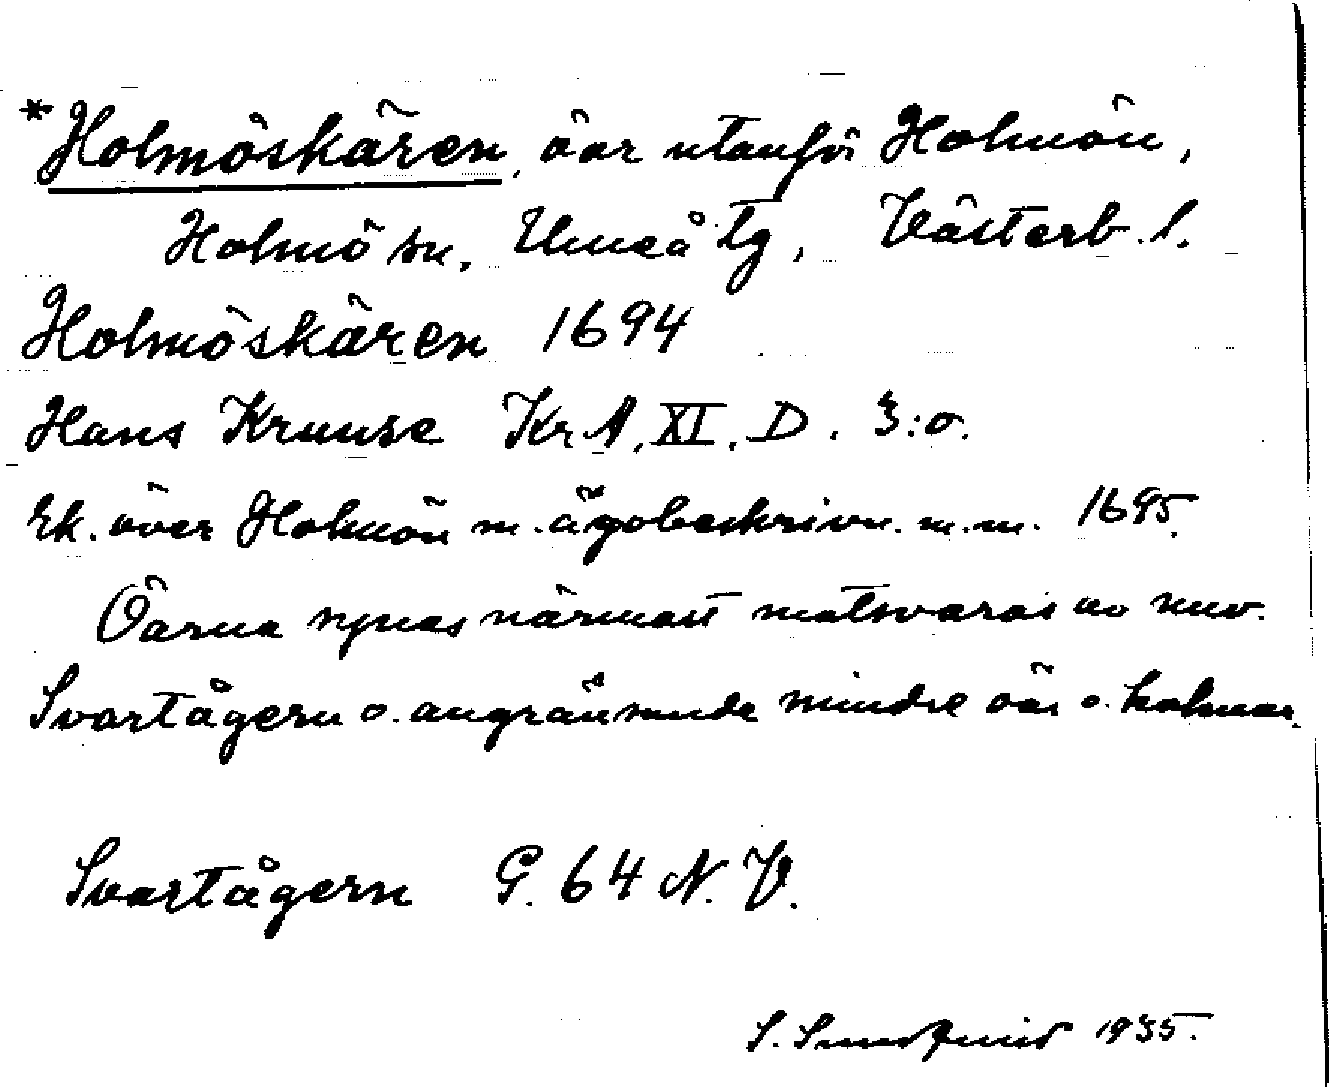 *Holmöskären, öar utanför Holmön,
Holmö sn, Umeå tg, Västerb. l.
Holmöskären 1694
Hans Kruuse Kr.A. XI. D. 3:o.
Ek. över Holmön m. ägobeskrivn. m.m. 1695.
Öarna synas närmast motsvaras av nuv.
Svartågern o. angränsande mindre öar o. holmar.
Svartågern G. 64 N.V.
S. Sundquist 1935.